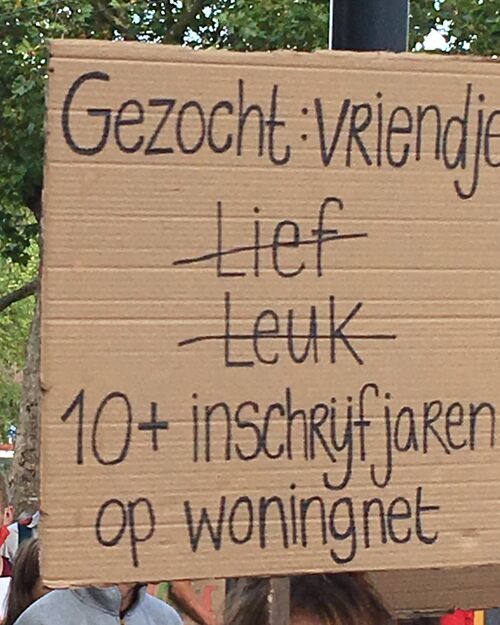 Gezocht: vriendje
Lief
Leuk
10+ inschrijfjaren
op woningnet